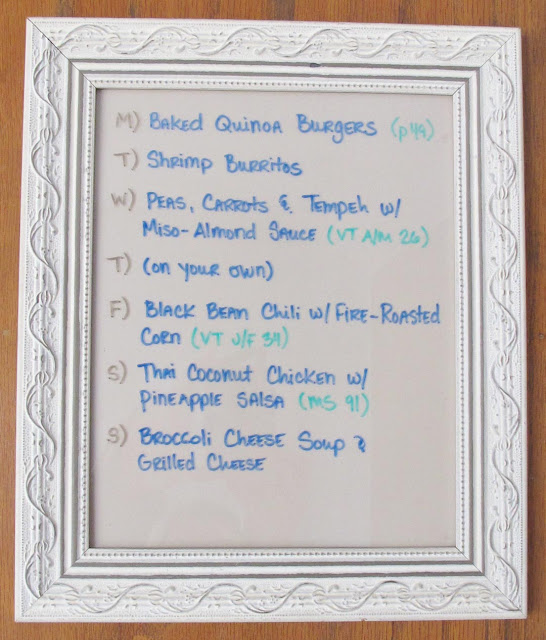 M) Baked Quinoa Burgers (p49)
T) Shrimp Burritos
W) Peas, Carrots & Tempeh w/
Miso-Almond Sauce (VT A/M 26)
T) (on your own)
F) Black Bean Chili w/ Fire-Roasted
Corn (VT J/F 34)
S) Thai Coconut Chicken w/
Pineapple Salsa (MS 91)
S) Broccoli Cheese Soup &
Grilled Cheese